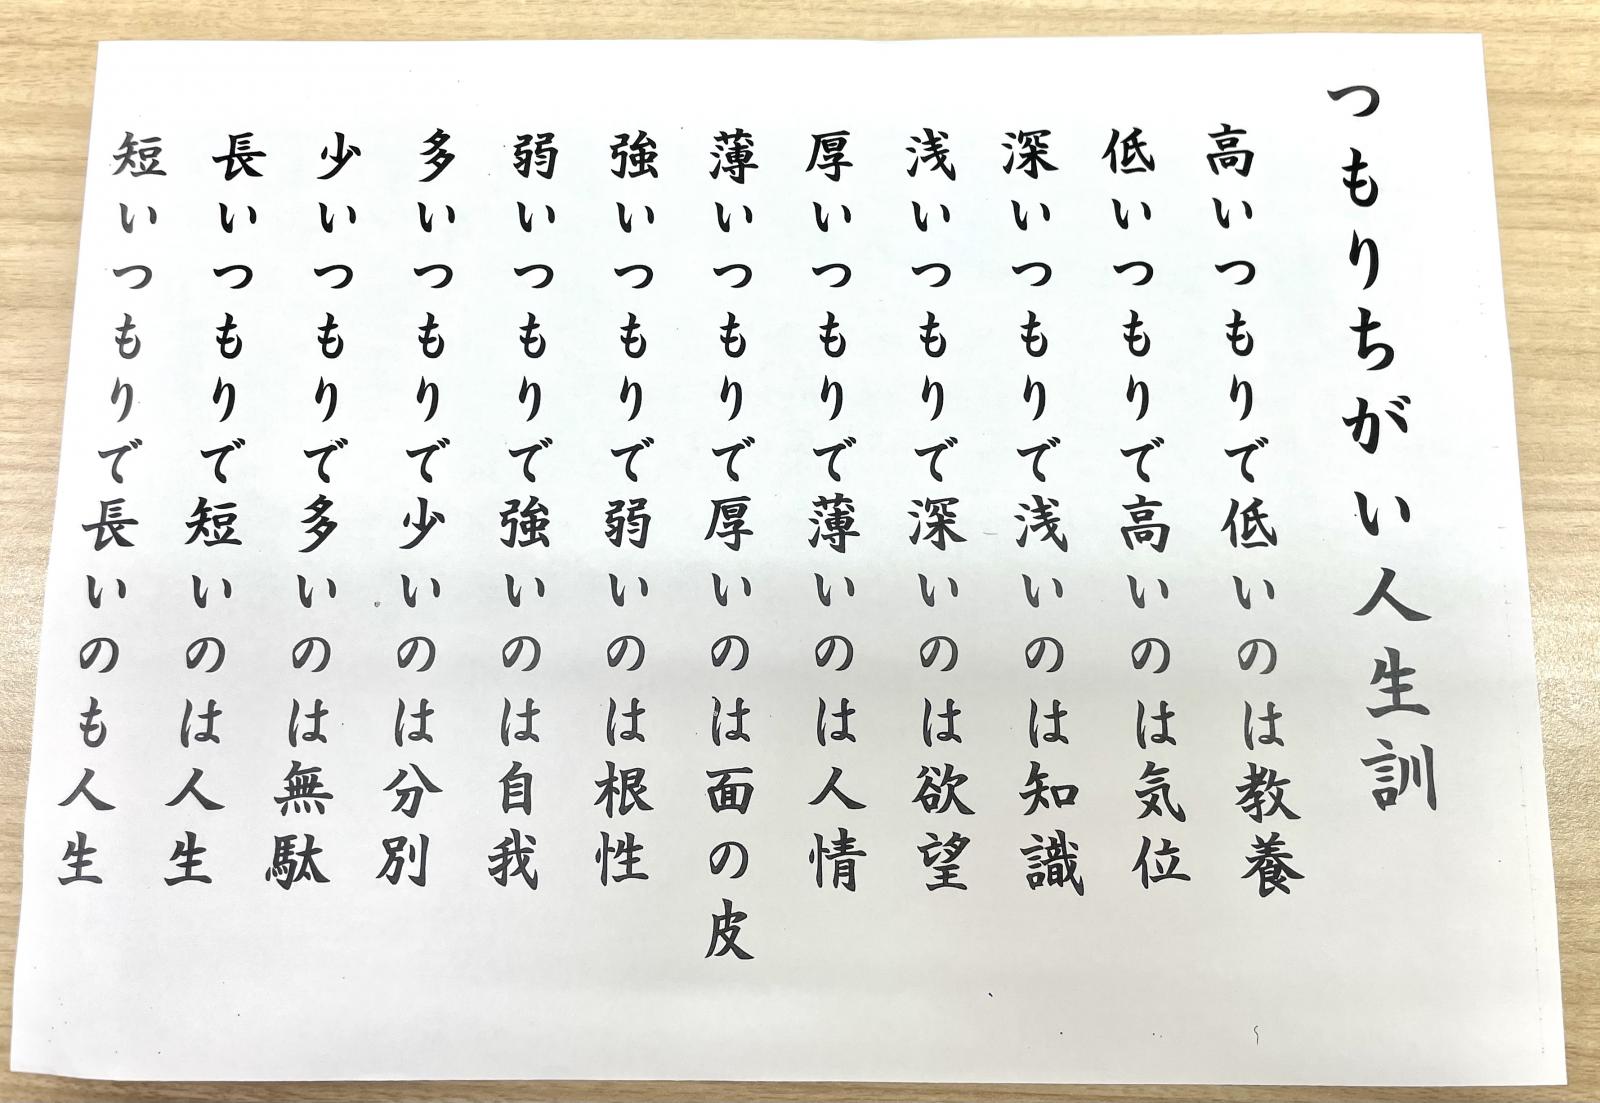 つもりちがい人生訓
高いつもりで低いのは教養
低いつもりで高いのは気位
深いつもりで浅いのは知識
浅いつもりで深いのは欲望
厚いつもりで薄いのは人情
薄いつもりで厚いのは面の皮
強いつもりで弱いのは根性
弱いつもりで強いのは自我
多いつもりで少いのは分別
少いつもりで多いのは無駄
長いつもりで短いのは人生
短いつもりで長いのも人生